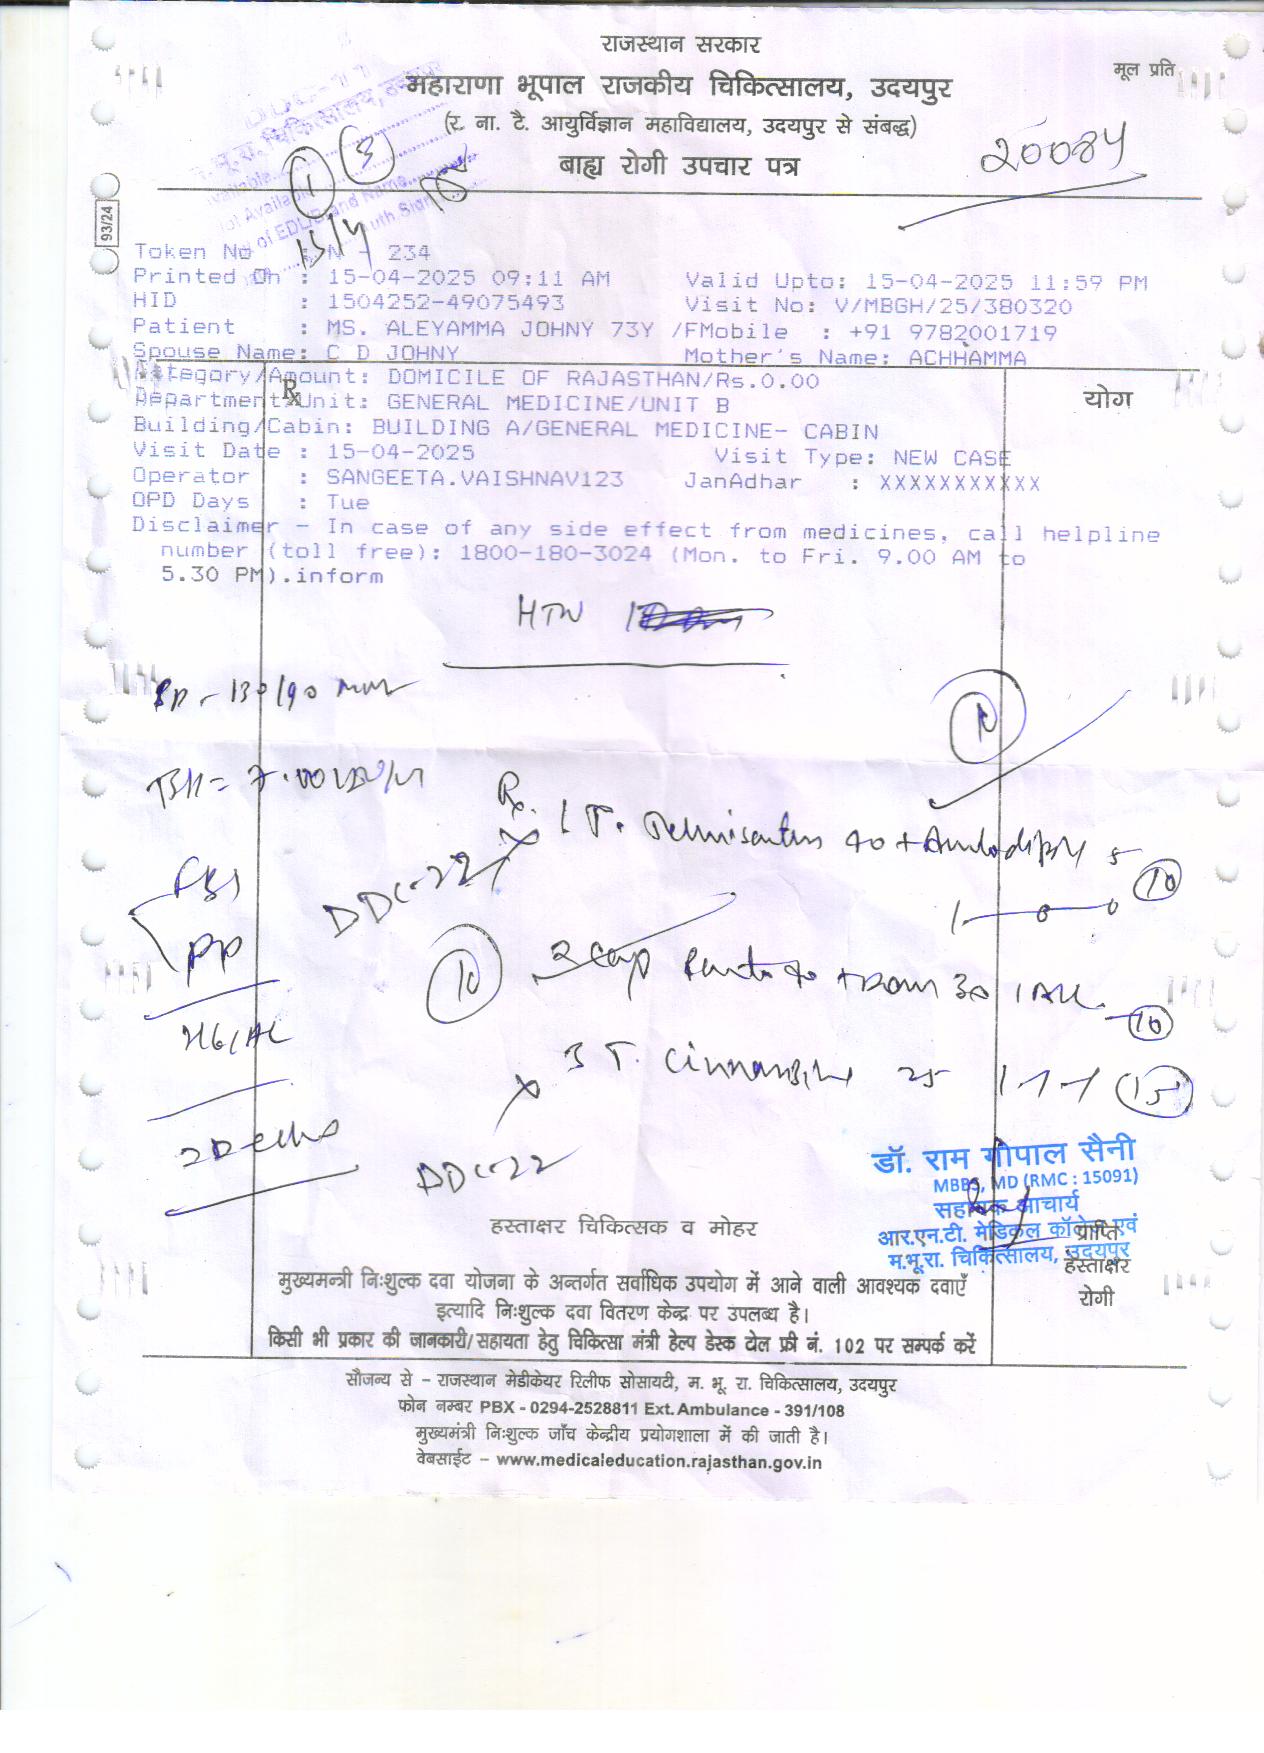 राजस्थान सरकार
मूल प्रति
महाराणा भूपाल राजकीय चिकित्सालय, उदयपुर
(र. ना. टै. आयुर्विज्ञान महाविद्यालय, उदयपुर से संबद्ध)
बाह्य रोगी उपचार पत्र
20084
1 3
93/24
Token No : N - 234
Printed On : 15-04-2025 09:11 AM Valid Upto: 15-04-2025 11:59 PM
HID : 1504252-49075493 Visit No: V/MBGH/25/380320
Patient : MS. ALEYAMMA JOHNY 73Y /FMobile : +91 9782001719
Spouse Name: C D JOHNY Mother's Name: ACHHAMMA
Kategory/Amount: DOMICILE OF RAJASTHAN/Rs.0.00
Rx
योग
Department/Unit: GENERAL MEDICINE/UNIT B
Building/Cabin: BUILDING A/GENERAL MEDICINE- CABIN
Visit Date : 15-04-2025 Visit Type: NEW CASE
Operator : SANGEETA.VAISHNAV123 JanAdhar : XXXXXXXXXXX
OPD Days : Tue
Disclaimer - In case of any side effect from medicines, call helpline
number (toll free): 1800-180-3024 (Mon. to Fri. 9.00 AM to
5.30 PM).inform
HTN
BP - 130/90
10
Rx.
1 T. Telmisartan 40 + Amlodipin 5
10
DDC-22
1 - 0 - 0
FBS
PP
10
2 cap 40 + Dom 30 1
10
3 T. Cinnarizine 25 1-1-1 15
2D echo
DDC-22
डॉ. राम गोपाल सैनी
MBBS, MD (RMC : 15091)
सहायक आचार्य
आर.एन.टी. मेडिकल कॉलेज एवं
म.भू.रा. चिकित्सालय, उदयपुर
हस्ताक्षर चिकित्सक व मोहर
प्राप्ति
हस्ताक्षर
रोगी
मुख्यमन्त्री निःशुल्क दवा योजना के अन्तर्गत सर्वाधिक उपयोग में आने वाली आवश्यक दवाएँ
इत्यादि निःशुल्क दवा वितरण केन्द्र पर उपलब्ध है।
किसी भी प्रकार की जानकारी/सहायता हेतु चिकित्सा मंत्री हेल्प डेस्क टोल फ्री नं. 102 पर सम्पर्क करें
सौजन्य से – राजस्थान मेडीकेयर रिलीफ सोसायटी, म. भू. रा. चिकित्सालय, उदयपुर
फोन नम्बर PBX - 0294-2528811 Ext. Ambulance - 391/108
मुख्यमंत्री निःशुल्क जाँच केन्द्रीय प्रयोगशाला में की जाती है।
वेबसाईट – www.medicaleducation.rajasthan.gov.in